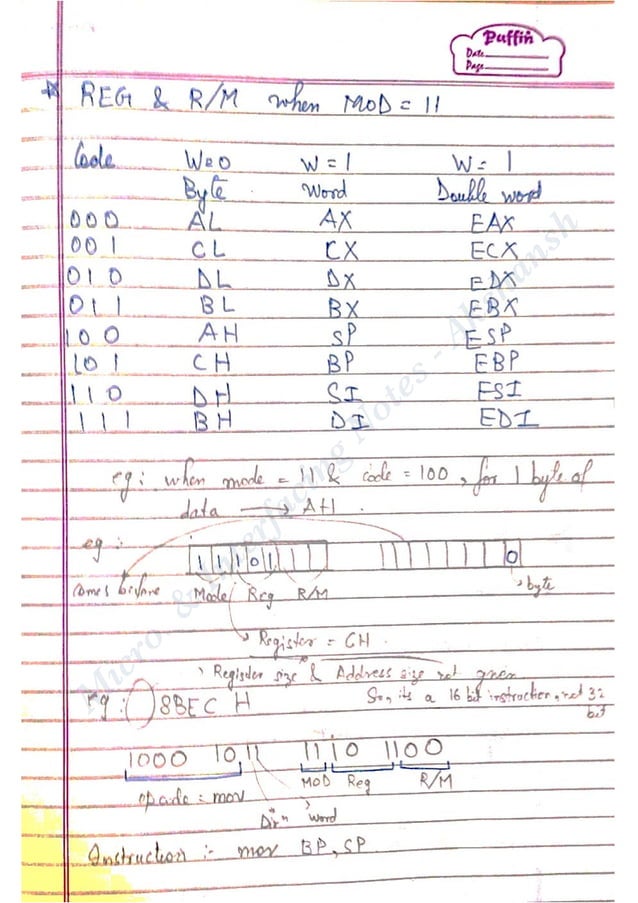 Puffin
Date
Page
* REG & R/M when MOD = 11
Code W=0 W = 1 W = 1
Byte Word Double word
000 AL AX EAX
001 CL CX ECX
010 DL DX EDX
011 BL BX EBX
100 AH SP ESP
101 CH BP EBP
110 DH SI ESI
111 BH DI EDI
eg: when mode = 11 & code = 100, for 1 byte of
data → AH.
eg:
1 1 1 0 1 0
comes before Mode Reg R/M byte
Register = CH.
Register size & Address size not given
eg: 8BEC H So, its a 16 bit instruction, not 32
bit
1000 10 11 11 10 1100
MOD Reg R/M
opcode = mov
Dirⁿ word
Instruction :- mov BP, SP
Micro - & Interfacing Notes - Akshansh